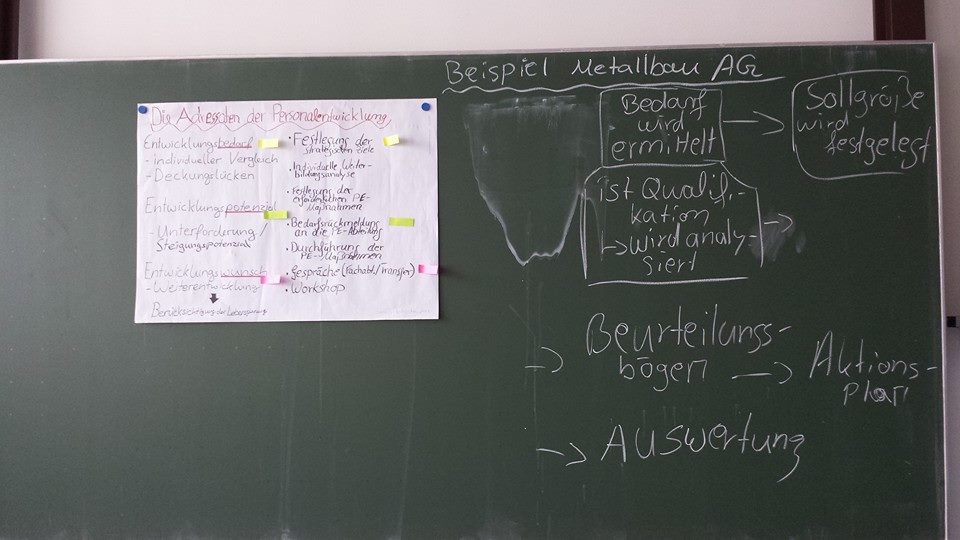 Die Adressaten der Personalentwicklung
Entwicklungsbedarf
- Individueller Vergleich
- Deckungslücken
Entwicklungspotenzial
- Unterforderung /
Steigungspotenzial
Entwicklungswunsch
- Weiterentwicklung
Berücksichtigung der Lebensplanung
• Festlegung der
strategischen Ziele
• Individuelle Weiter-
bildungsanalyse
• Festlegung der
erforderlichen PE-
Maßnahmen
• Bedarfsrückmeldung
an die PE-Abteilung
• Durchführung der
PE-Maßnahmen
• Gespräche (Fachabt./Transfer)
• Workshop
Beispiel Metallbau AG
Bedarf
wird
ermittelt
Sollgröße
wird
festgelegt
ist Qualifi-
kation
wird analy-
siert
Beurteilungs-
bögen
Aktions-
plan
Auswertung